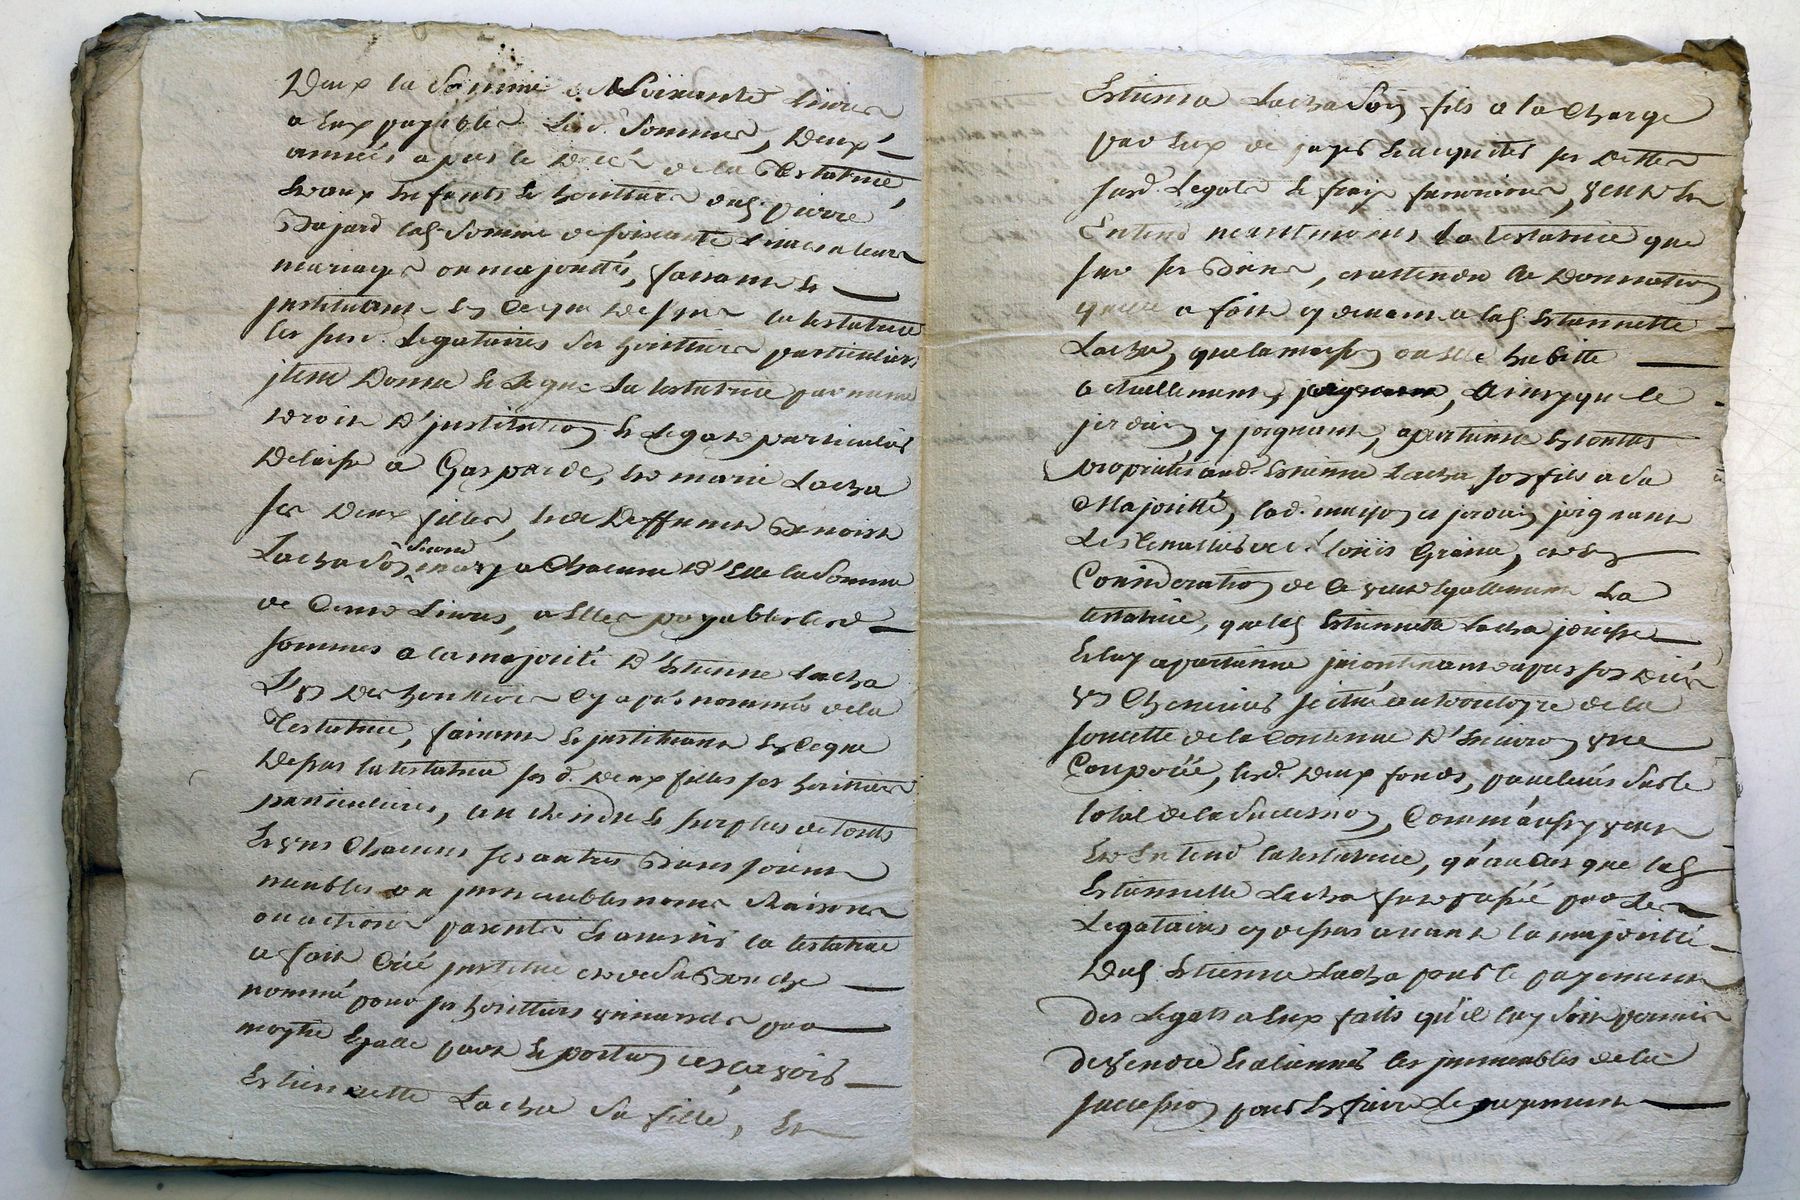 Deux la Somme de Soixante Livres
a Eux payables Lesd. Sommes, Deux
années apres le Décés de la Testatrice,
Et aux Enfants & heritiers dud. pierre
Dujard lad. Somme de soixante Livres a leurs
mariages ou majorités, faisant &
instituant En Ce que Dessus la testatrice
les susd. Legataires Ses heritiers particuliers
jtem Donne & Legue La testatrice par meme
Droit D'jnstitution & Legat particulier
Delaisse a Gasparde, Et marie Lacha
ses Deux filles, & de Deffunt Benoist
Lacha Son Second mary a Chacune D'Elle la Somme
de Cent Livres, a Elles payables lesd.
sommes a la majorité D'Etienne Lacha
L'un Des heritiers Cy après nommés de la
Testatrice, faisant & jnstituant En Ce que
Dessus la testatrice sesd. Deux filles ses heritieres
particulieres, Au Residu & surplus de touts
Et uns Chacuns ses autres Biens soient
meubles ou jmmeubles noms Raisons
ou actions presents & avenirs la testatrice
a fait Créé jnstitué et de Sa Bouche
nommé pour ses heritiers universels par
moytié Egalle part & portion
Estiennette Lacha Sa fille, Et
Estienne Lacha Son fils a la Charge
par Eux de payer & acquiter ses Dettes
susd. Legats & frais funeraires, veut &
Entend neantmoins La testatrice que
sur ses Biens, attendu la Donnation
qu'elle a fait cy devant a lad. Estiennette
Lacha, que la maison ou Elle habitte
actuellement, ainsy que le
jardin y joignant, apartienne En toutes
proprietés aud. Estienne Lacha son fils a Sa
Majorité, lad. maison et jardin joignant
Louis et En
Consideration de Ce veut Egallement La
testatrice, que lad. Estiennette Lacha jouisse
& luy apartienne jncontinant apres son Décés
un Chenevier situé au territoyre de la
de la Contenue D'Environ une
Coupée, lesd. Deux fonds, prelevés Sur le
total de la Succession, Comm'aussy veut
Et Entend la testatrice, qu'au Cas que lad.
Estiennette Lacha fut par Les
Legataires cy dessus avant la majorité
Dud. Estienne Lacha pour le payement
Des Legats a Eux faits qu'il luy Soit permis
de vendre & alienner les jmmeubles de la
succession pour En faire Le payement